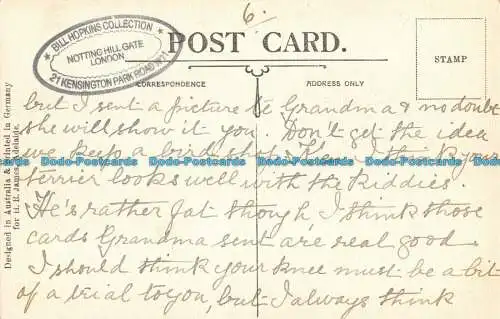 6.
BILL HOPKINS COLLECTION
NOTTING HILL GATE
LONDON
21 KENSINGTON PARK ROAD W11
POST CARD.
CORRESPONDENCE
ADDRESS ONLY
STAMP
Designed in Australia & Printed in Germany
for H. E. James, Adelaide.
but I sent a picture to Grandma & no doubt
she will show it you. Don't get the idea
we keep a bird shop. I think your
terrier looks well with the kiddies.
He's rather fat though, I think those
cards Grandma sent are real good
I should think your knee must be a bit
of a trial to you, but I always think
Dodo-Postcards Dodo-Postcards Dodo-Postcards Dodo-Postcards Dodo-Postcards